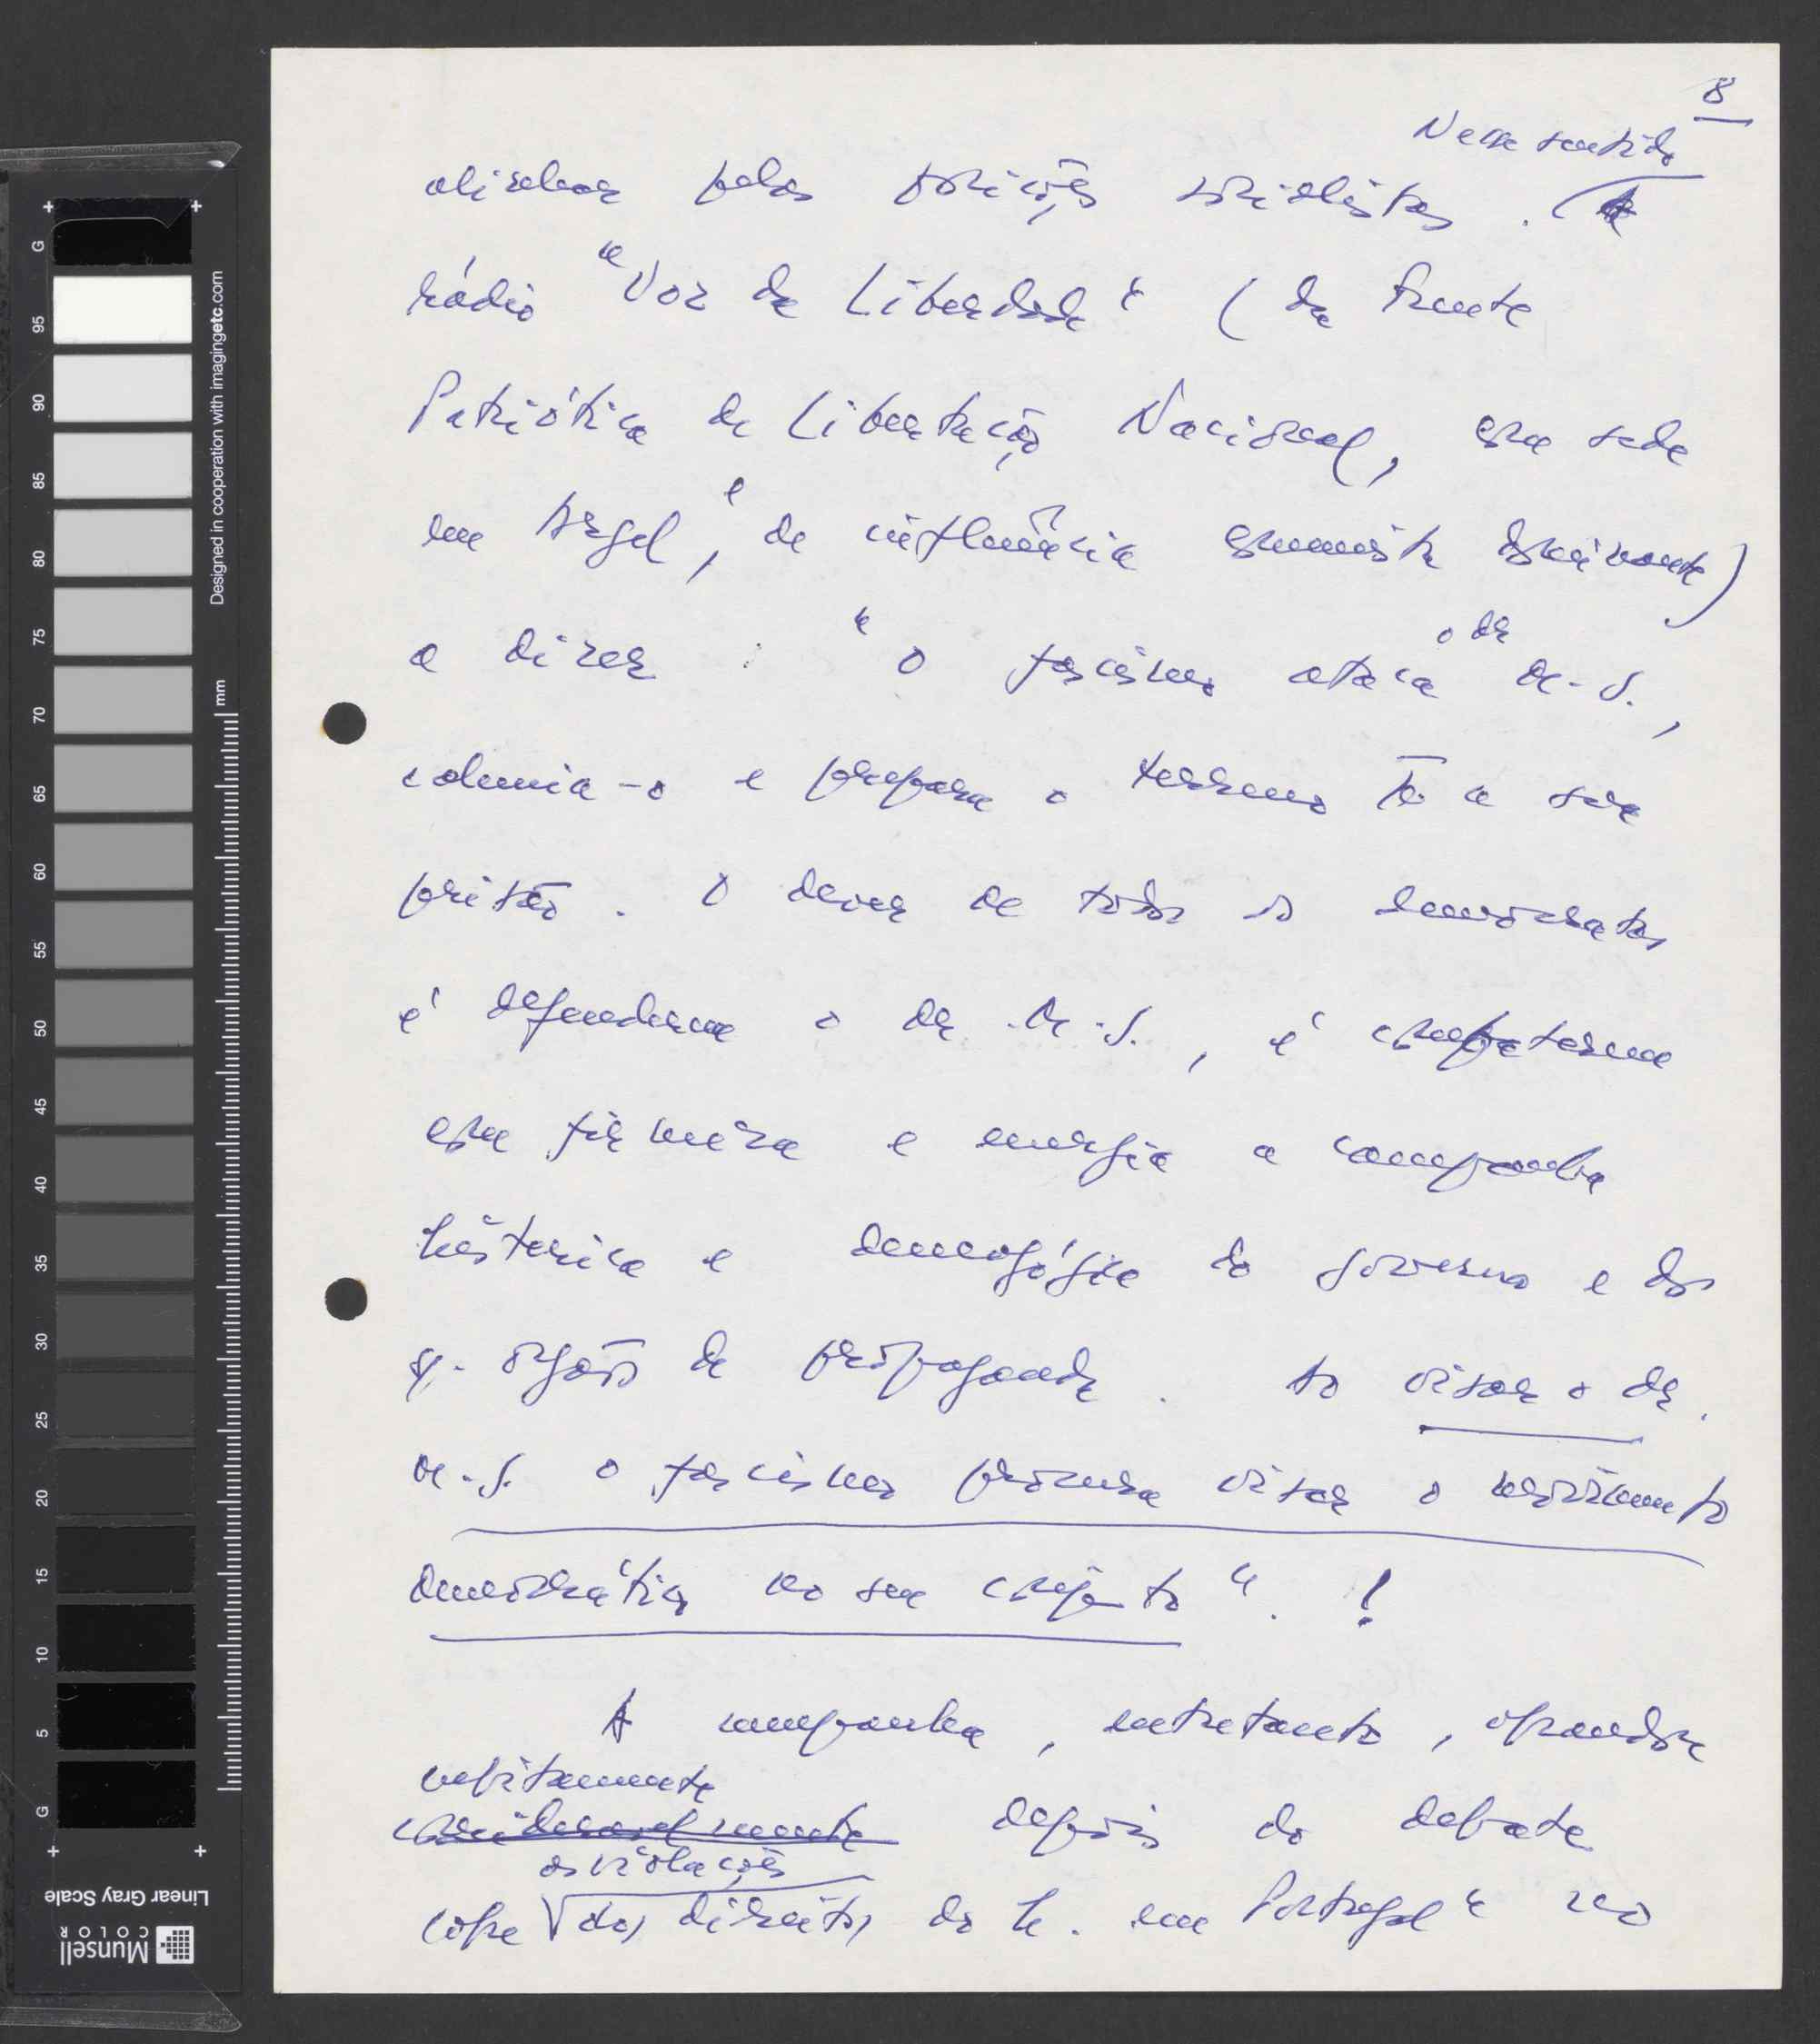 8
Nesse sentido
alinhar pelas posições socialistas. A
rádio "Voz da Liberdade" (da Frente
Patriótica de Libertação Nacional, com sede
em Argel, e de influência comunista dominante)
a dizer : "o fascismo ataca o dr M. S.,
calunia-o e prepara o terreno pª a sua
prisão. O dever de todos os democratas
é defenderem o dr. M. S., é combaterem
com firmeza e energia a campanha
histérica e demagógica do governo e dos
s/. orgãos de propaganda. Ao visar o dr.
M. S. o fascismo procura visar o movimento
democrático no seu conjunto". !
A campanha, entretanto,
subitamente
consideravelmente depois do debate
as violações
sobre dos direitos do h. em Portugal" no
G 95 90 85 80 75 70 65 60 55 50 45 40 35 30 25 20 15 10 5 G
Designed in cooperation with imagingetc.com
mm
Linear Gray Scale
Munsell
COLOR